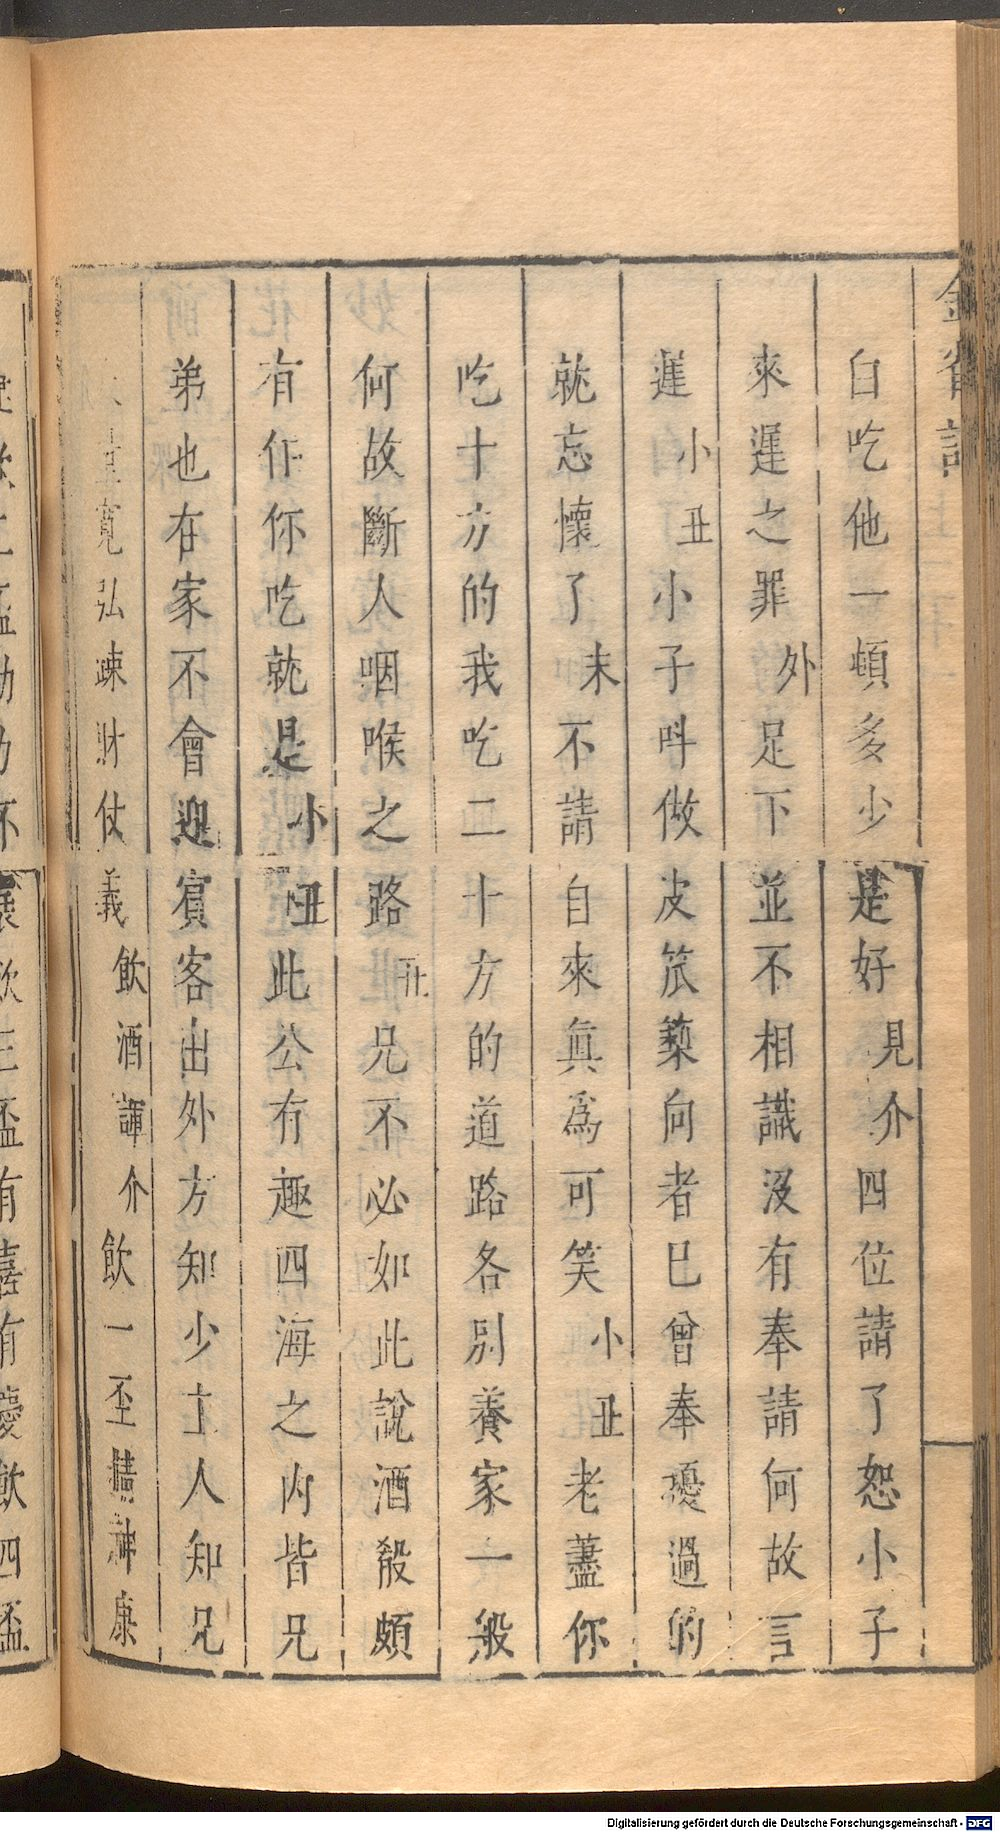 白吃他一頓多少是好見介四位請了恕小子
來遲之罪外足下並不相識没有奉請何故言
遲小丑小子呌做皮笊藜向者已曾奉擾過的
就忘懷了末不請自來眞爲可笑小丑老藎你
吃十方的我吃二十方的道路各别養家一般
何故斷人咽喉之路丑兄不必如此說酒殽頗
有任你吃就是小丑此公有趣四海之内皆兄
弟也在家不會迎賓客出外方知少主人知兄
寛弘疎財仗義飲酒諢介飲一盃精神康
Digitalisierung gefördert durch die Deutsche Forschungsgemeinschaft - DFG